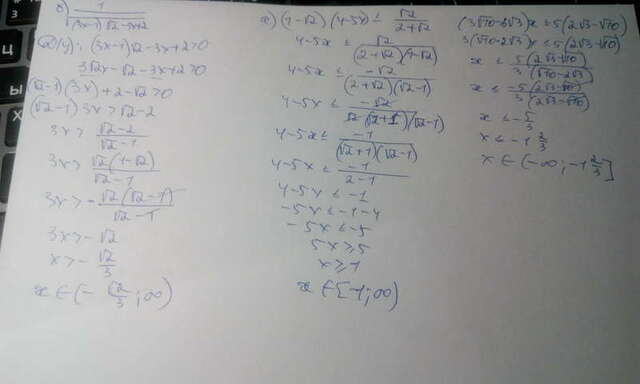 б) 1/√((3x-1)√2-3x+2)
D(y): (3x-1)√2-3x+2>0
3√2x-√2-3x+2>0
(√2-1)(3x)+2-√2>0
(√2-1)3x>√2-2
3x>(√2-2)/(√2-1)
3x>√2(1-√2)/(√2-1)
3x>-√2(√2-1)/(√2-1)
3x>-√2
x>-√2/3
x∈(-√2/3;∞)
(1-√2)(4-5x)≤√2/(2+√2)
4-5x≤√2/((2+√2)(1-√2))
4-5x≤-√2/((2+√2)(√2-1))
4-5x≤-√2/(√2(√2+1)(√2-1))
4-5x≤-1/((√2+1)(√2-1))
4-5x≤-1/(2-1)
4-5x≤-1
-5x≤-1-4
-5x≤-5
5x≥5
x≥1
x∈[1;∞)
(3√10-6√3)x≥5(2√3-√10)
3(√10-2√3)x≤5(2√3-√10)
x≤5(2√3-√10)/3(√10-2√3)
x≤-5(2√3-√10)/3(2√3-√10)
x≤-5/3
x≤-1 2/3
x∈(-∞;-1 2/3]